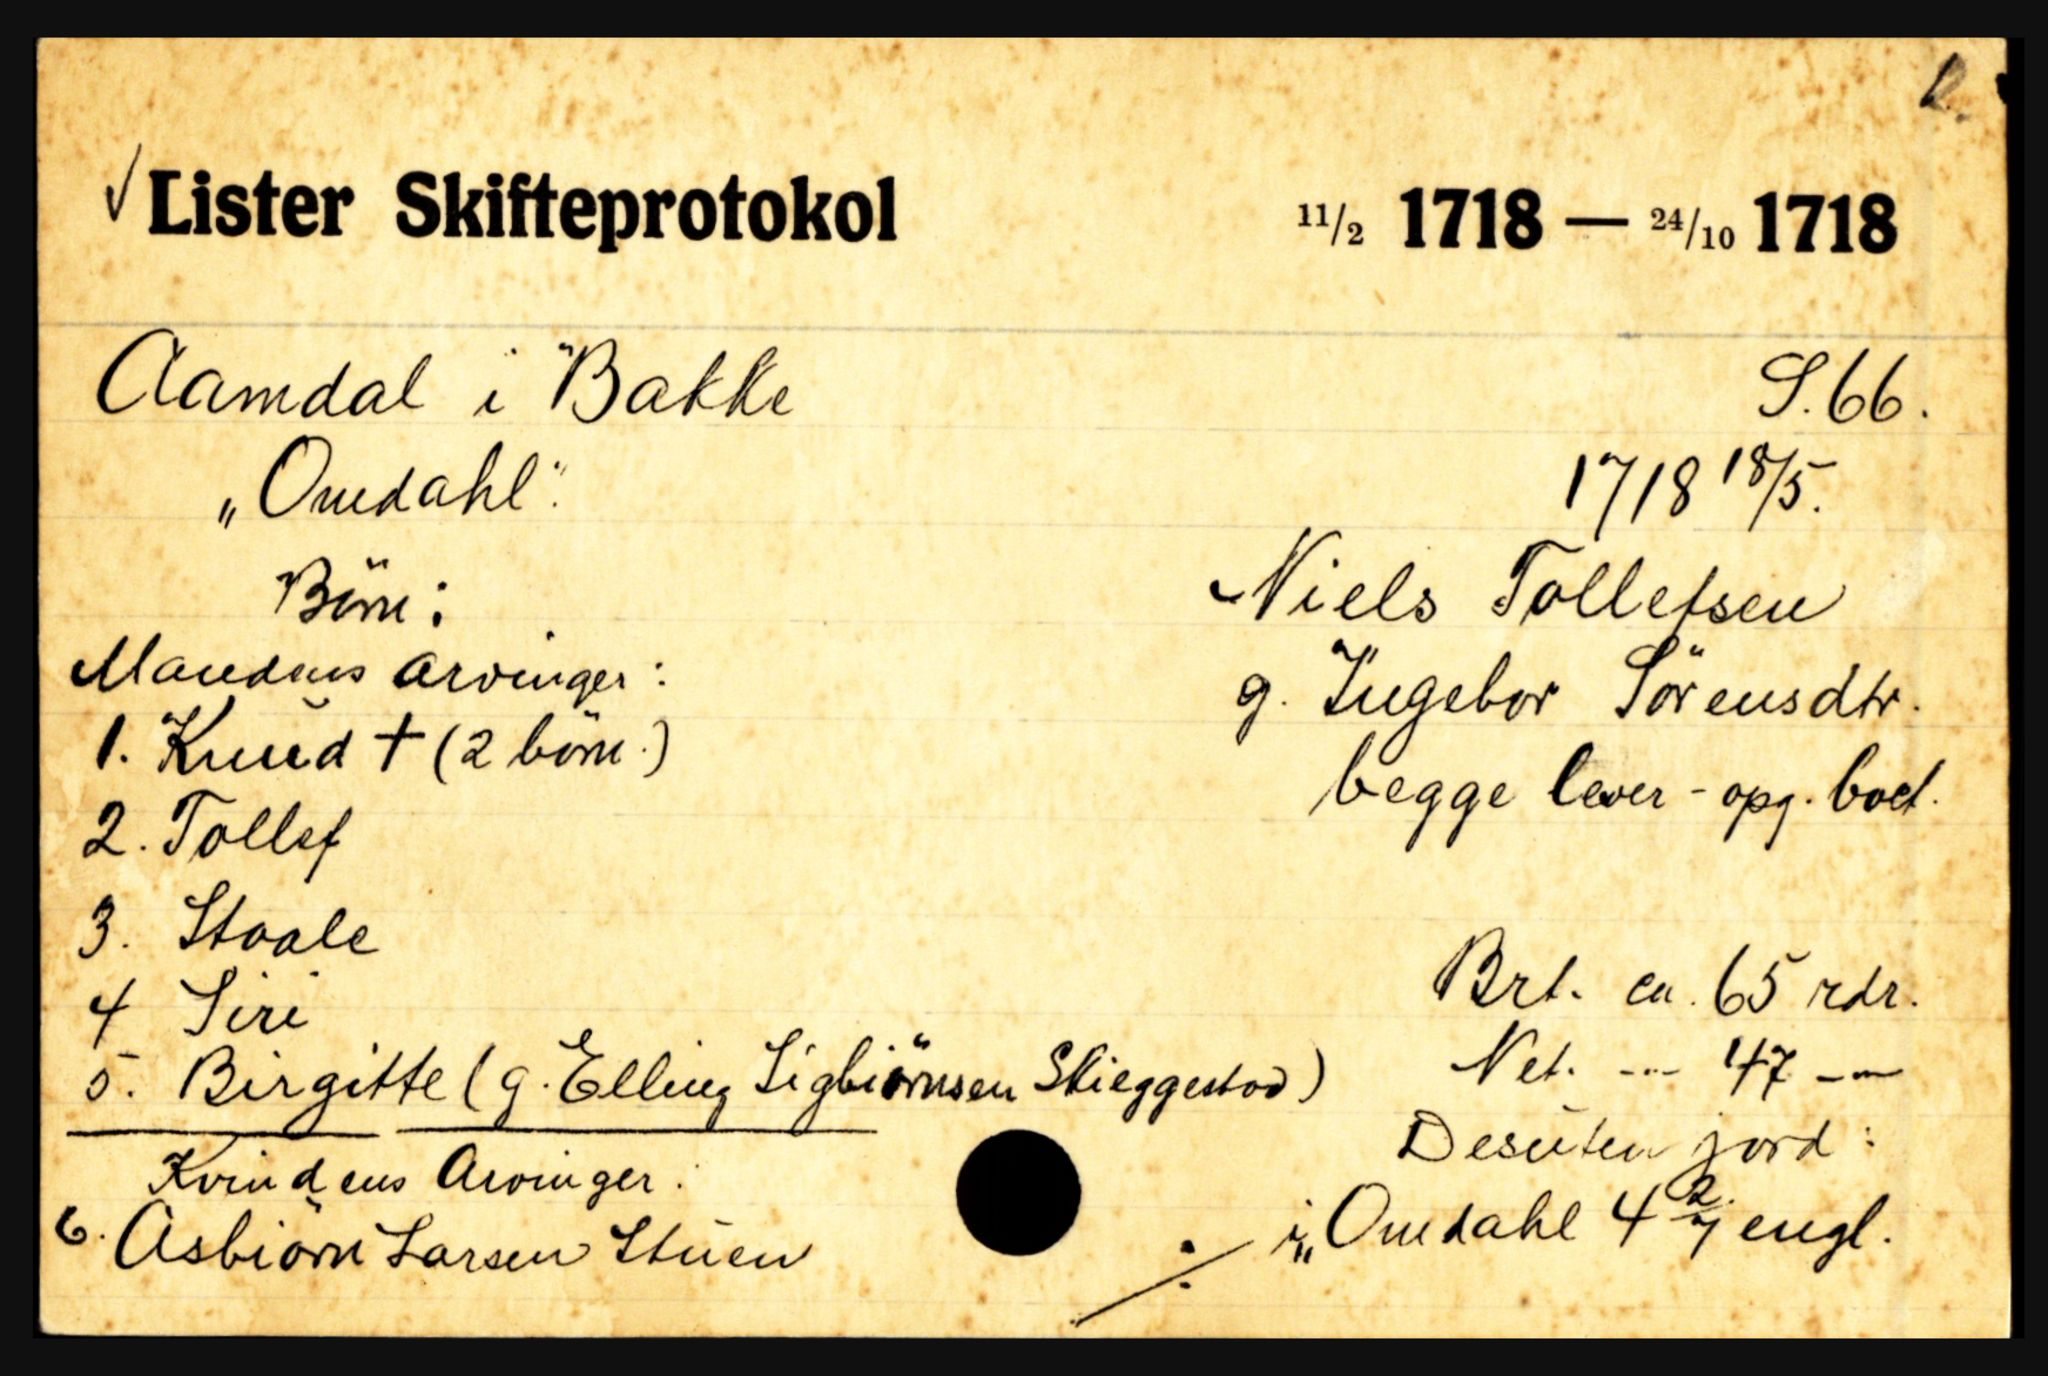 Lister Skifteprotokol 11/2 1718 — 24/10 1718
Aamdal i Bakke S. 66.
"Omdahl". 1718 18/5.
Börn: Niels Tollefsen
Mandens arvinger: g. Ingebor Sörensdtr.
1. Knud † (2 börn.) begge lever - opg. boet.
2. Tollef
3. Staale
4 Siri Brt. ca. 65 rdr.
5. Birgitte (g. Elling Sigbiörnsen Skieggestad) Net. -..- 47 -..-
Kvindens Arvinger: Desuten jord:
6. Asbiörn Larsen Stuen ./. i „Omdahl 4 2/7 engl.